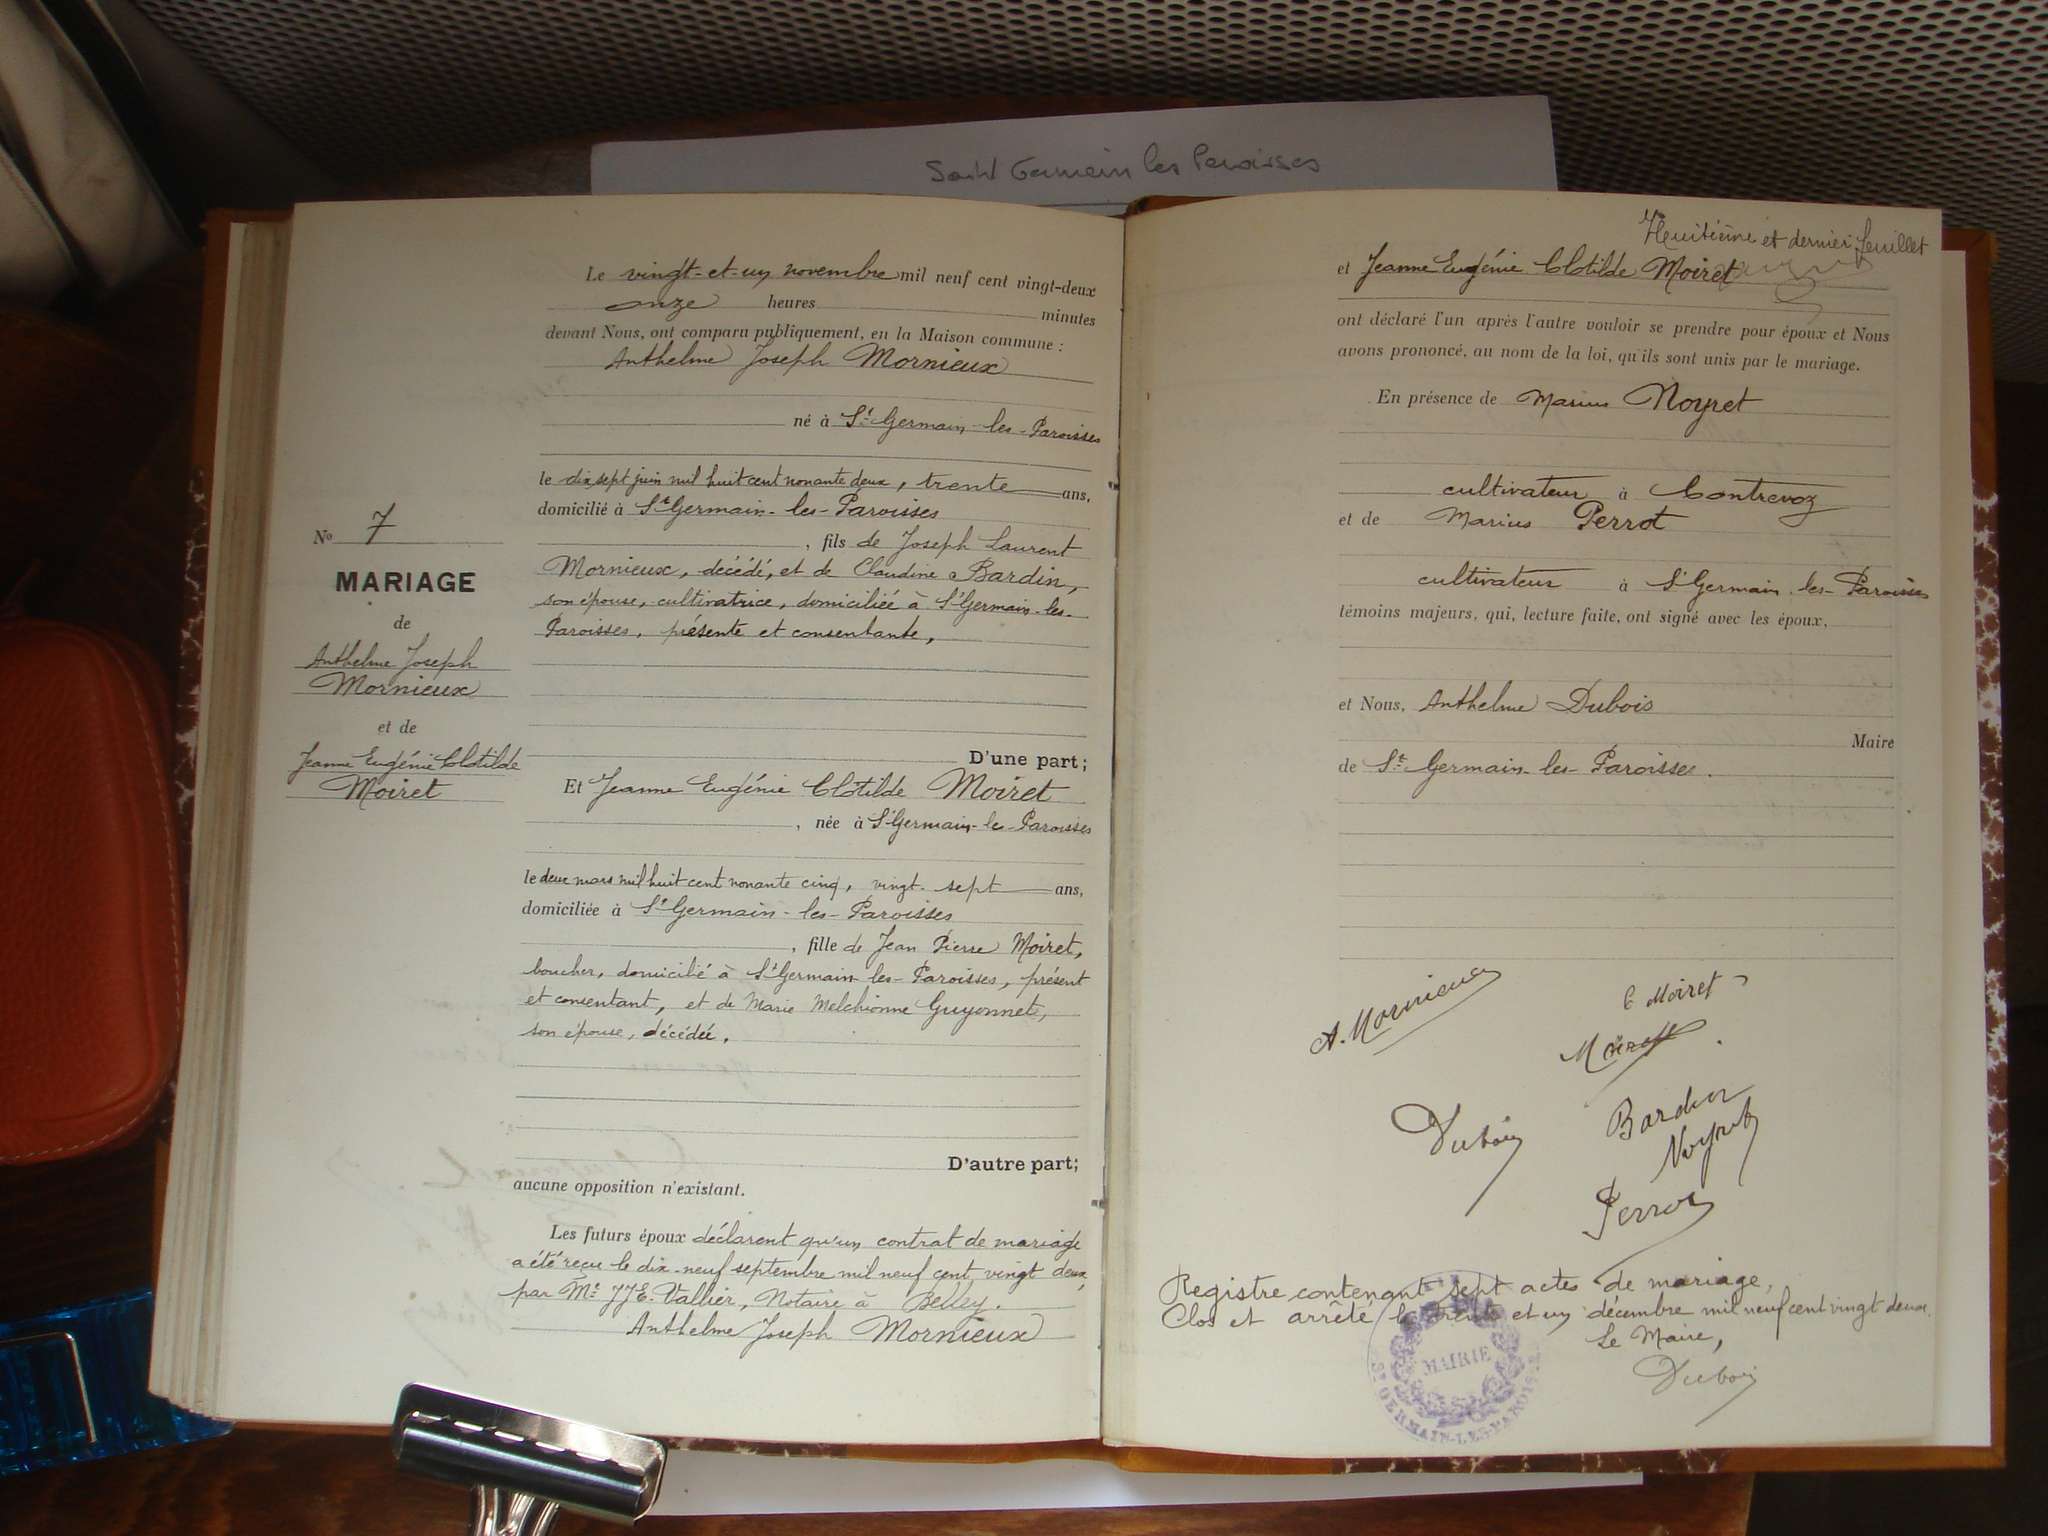 Saint Germain les Paroisses
Le vingt-et-un novembre mil neuf cent vingt-deux
onze heures minutes
devant Nous, ont comparu publiquement, en la Maison commune :
Anthelme Joseph Mornieux
né à St Germain-les-Paroisses
le dix sept juin mil huit cent nonante deux, trente ans,
domicilié à St Germain-les-Paroisses
, fils de Joseph Laurent
Mornieux, décédé, et de Claudine Bardin,
son épouse, cultivatrice, domiciliée à St Germain-les-
Paroisses, présente et consentante,
D'une part;
Et Jeanne Eugénie Clotilde Moiret
, née à St Germain-les-Paroisses
le deux mars mil huit cent nonante cinq, vingt-sept ans,
domiciliée à St Germain-les-Paroisses
, fille de Jean Pierre Moiret,
boucher, domicilié à St Germain-les-Paroisses, présent
et consentant, et de Marie Melchionne Guyonnet,
son épouse, décédée.
D'autre part;
aucune opposition n'existant.
Les futurs époux déclarent qu'un contrat de mariage
a été reçu le dix-neuf septembre mil neuf cent vingt deux,
par Me JJE. Vallier, Notaire à Belley.
Anthelme Joseph Mornieux
No 7
MARIAGE
de
Anthelme Joseph
Mornieux
et de
Jeanne Eugénie Clotilde
Moiret
Huitième et dernier feuillet
et Jeanne Eugénie Clotilde Moiret
ont déclaré l'un après l'autre vouloir se prendre pour époux et Nous
avons prononcé, au nom de la loi, qu'ils sont unis par le mariage.
En présence de Marius Noyret
cultivateur à Contrevoz
et de Marius Perrot
cultivateur à St Germain-les-Paroisses
témoins majeurs, qui, lecture faite, ont signé avec les époux,
et Nous, Anthelme Dubois
Maire
de St Germain-les-Paroisses.
A. Mornieux
C Moiret
Moiret
Dubois
Bardin
Noyret
Perrot
Registre contenant sept actes de mariage,
Clos et arrêté le trente et un décembre mil neuf cent vingt deux.
Le Maire,
Dubois
MAIRIE
ST GERMAIN-LES-PAROISSES